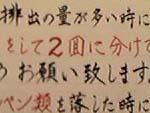 排出の量が多い時に
をして2回に分けて
お願い致します
ペン類を落した時に